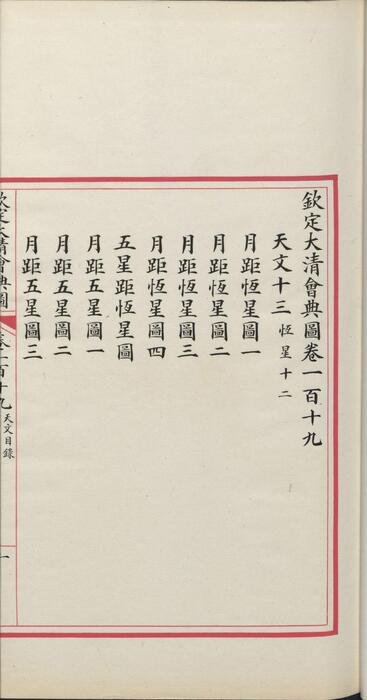 欽定大清會典圖卷一百十九
天文十三 恆星十二
月距恆星圖一
月距恆星圖二
月距恆星圖三
月距恆星圖四
五星距恆星圖
月距五星圖一
月距五星圖二
月距五星圖三
欽定大清會典圖 卷一百十九 天文目錄 一